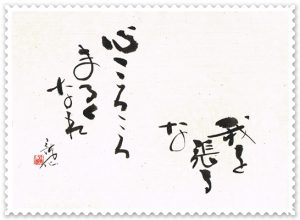 我を
張る
な
心ころころ
まるく
なれ